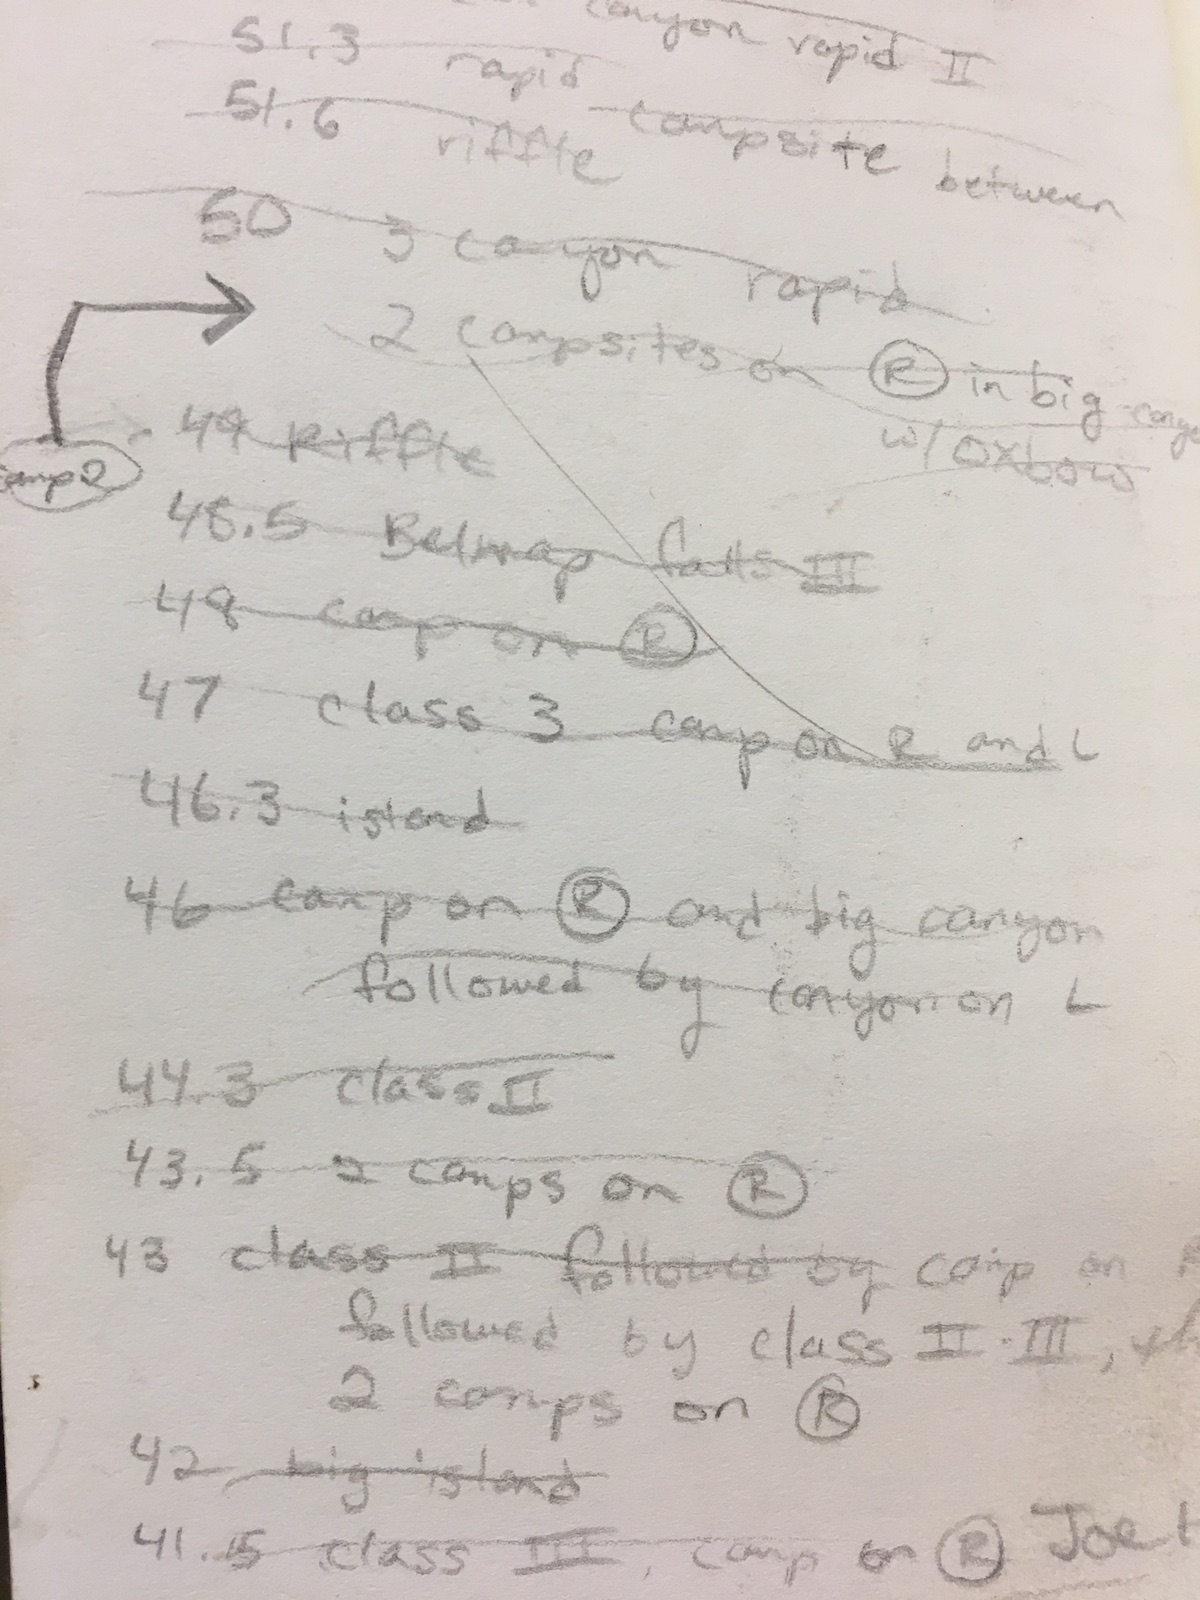 canyon rapid II
51.3 rapid
51.6 riffle campsite between
50 3 canyon rapid
2 campsites on R in big
w/ oxbow
49 Riffle
camp 2
48.5 Belmap falls III
48 camp on R
47 class 3 camp on R and L
46.3 island
46 camp on R and big canyon
followed by canyon on L
44.3 class II
43.5 2 camps on R
43 class II followed by camp on
followed by class II-III,
2 camps on R
42 big island
41.5 class III, camp on R Joe